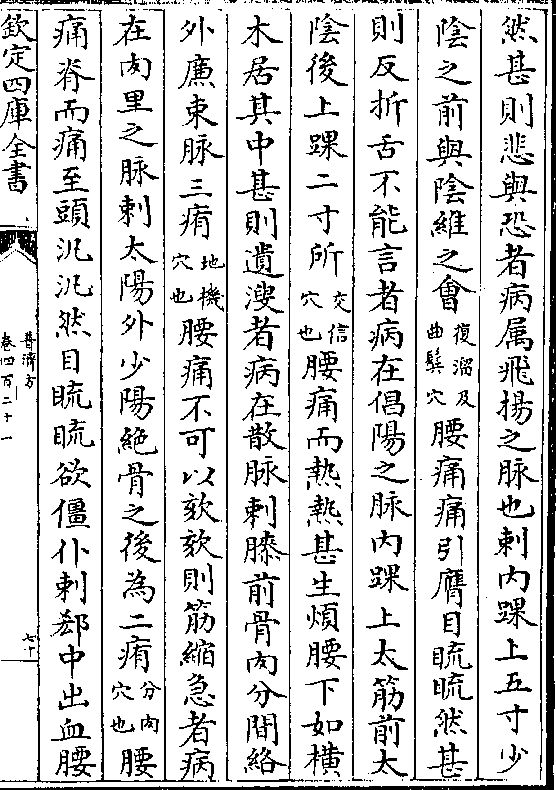 然甚則悲與恐者病属飛揚之脉也刺内踝上五寸少
陰之前與陰維之會復溜及曲鬓穴腰痛痛引膺目𥆨𥆨然甚
則反折舌不能言者病在倡陽之脉内踝上太筋前太
陰後上踝二寸所交信穴也腰痛而熱熱甚生煩腰下如横
木居其中甚則遺溲者病在散脉刺膝前骨肉分間絡
外廉束脉三痏地機穴也腰痛不可以欬欬則筋縮急者病
在肉里之脉刺太陽外少陽絶骨之後為二痏分肉穴也腰
痛脊而痛至頭沉沉然目𥆨𥆨欲僵仆刺郄中出血腰
欽定四庫全書
普濟方
卷四百二十一
七十